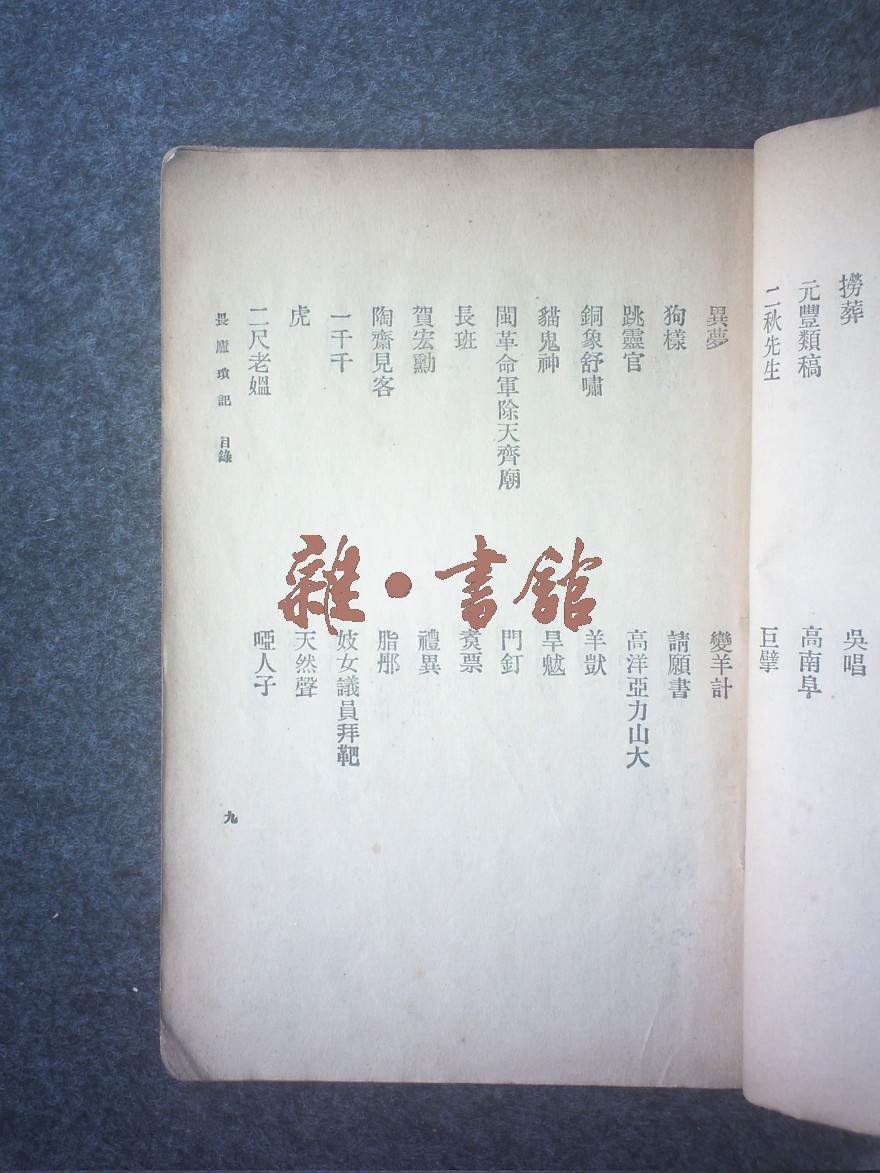 撈葬
吳唱
元豐類稿
高南阜
二秋先生
巨擘
異夢
變羊計
狗樣
請願書
跳靈官
高洋亞力山大
銅象舒嘯
羊獃
貓鬼神
旱魃
閩革命軍除天齊廟
門釘
長班
賀宏勳
禮異
陶齋見客
一千千
妓女議員拜靶
虎
天然聲
二尺老媼
啞人子
畏廬瑣記 目錄
九
雜・書館